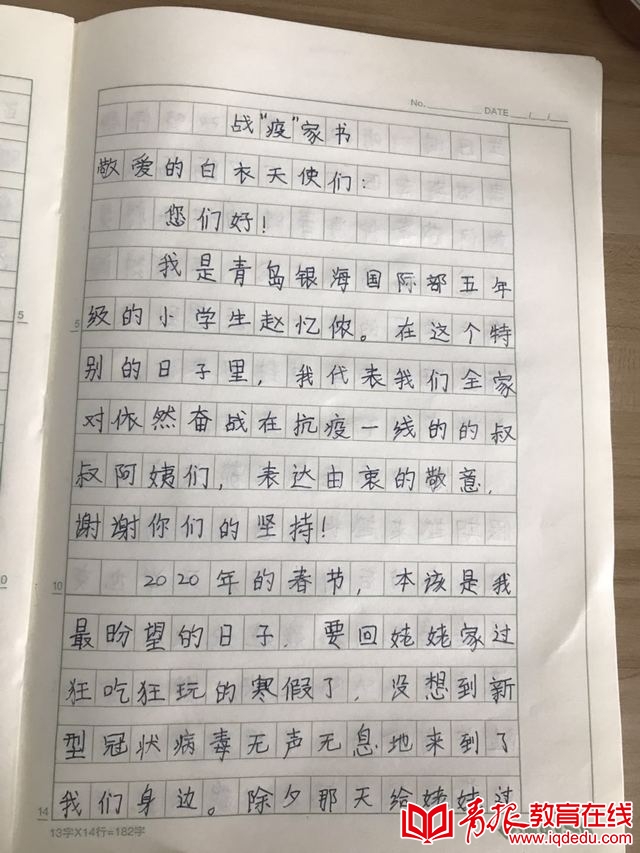 No. DATE / /
战“疫”家书
敬爱的白衣天使们：
您们好！
我是青岛银海国际部五年
级的小学生赵忆侬。在这个特
别的日子里，我代表我们全家
对依然奋战在抗疫一线的的叔
叔阿姨们，表达由衷的敬意，
谢谢你们的坚持！
2020年的春节，本该是我
最盼望的日子，要回姥姥家过
狂吃狂玩的寒假了，没想到新
型冠状病毒无声无息地来到了
我们身边。除夕那天给姥姥过
5
5
10
0
14
13字X14行=182字
青报教育在线
www.iqdedu.com